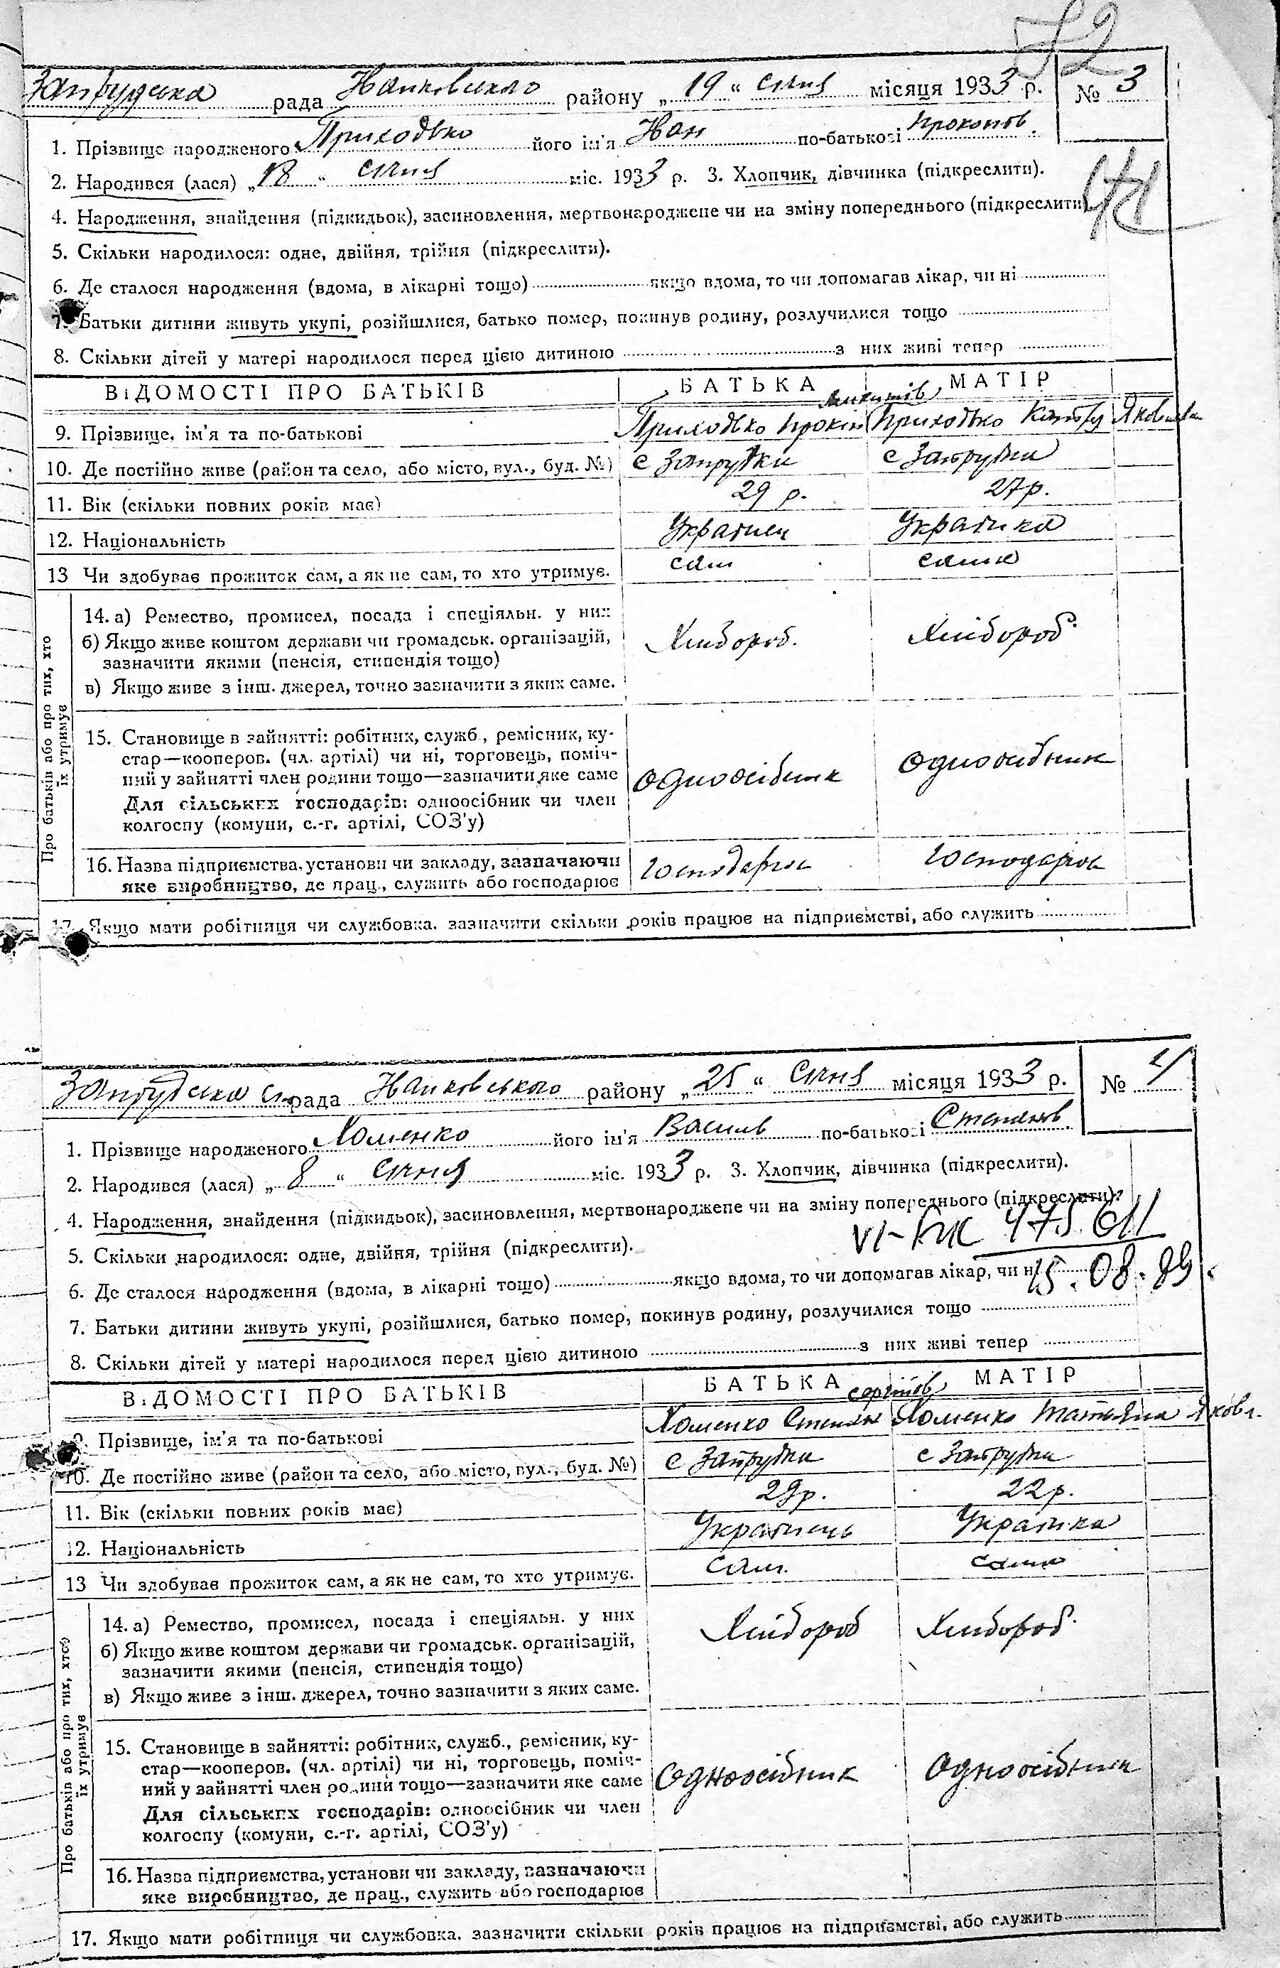 72
Запрудська рада Наиковського району „19“ січня місяця 1933 р. № 3
1. Прізвище народженого Приходько його ім'я Иан по-батькові Прокопов.
2. Народився (лася) „18“ січня міс. 1933 р. 3. Хлопчик, дівчинка (підкреслити).
4. Народження, знайдення (підкидьок), засиновлення, мертвонароджене чи на зміну попереднього (підкреслити)
5. Скільки народилося: одне, двійня, трійня (підкреслити).
6. Де сталося народження (вдома, в лікарні тощо) якщо вдома, то чи допомагав лікар, чи ні
7. Батьки дитини живуть укупі, розійшлися, батько помер, покинув родину, розлучилися тощо
8. Скільки дітей у матері народилося перед цією дитиною з них живі тепер
ВІДОМОСТІ ПРО БАТЬКІВ БАТЬКА МАТІР
9. Прізвище, ім'я та по-батькові Приходько Прокіп Приходько Катер Яковлевна
10. Де постійно живе (район та село, або місто, вул., буд. №) с Запрудки с Запрудки
11. Вік (скільки повних років має) 29 р. 27 р.
12. Національність Украінец Украінка
13 Чи здобував прожиток сам, а як не сам, то хто утримує. сам сама
Про батьків або про тих, хто їх утримує
14. а) Ремество, промисел, посада і спеціяльн. у них
б) Якщо живе коштом держави чи громадськ. організацій,
зазначити якими (пенсія, стипендія тощо) Хлібороб. Хлібороб
в) Якщо живе з інш. джерел, точно зазначити з яких саме.
15. Становище в зайнятті: робітник, служб., ремісник, ку-
стар—кооперов. (чл. артілі) чи ні, торговець, поміч-
ний у зайнятті член родини тощо—зазначити яке саме одноосібник одноосібник
Для сільських господарів: одноосібник чи член
колгоспу (комуни, с.-г. артілі, СОЗ'у)
16. Назва підприємства, установи чи закладу, зазначаючи
яке виробництво, де прац., служить або господарює господарює господарює
17. Якщо мати робітниця чи службовка, зазначити скільки років працює на підприємстві, або служить
Запрудська с. рада Наиковського району „25“ січня місяця 1933 р. № 4
1. Прізвище народженого Хоменко його ім'я Василь по-батькові Степанов.
2. Народився (лася) „8“ січня міс. 1933 р. 3. Хлопчик, дівчинка (підкреслити).
4. Народження, знайдення (підкидьок), засиновлення, мертвонароджене чи на зміну попереднього (підкреслити).
VI-БК 475611
5. Скільки народилося: одне, двійня, трійня (підкреслити).
6. Де сталося народження (вдома, в лікарні тощо) якщо вдома, то чи допомагав лікар, чи ні
15.08.89.
7. Батьки дитини живуть укупі, розійшлися, батько помер, покинув родину, розлучилися тощо
8. Скільки дітей у матері народилося перед цією дитиною з них живі тепер
ВІДОМОСТІ ПРО БАТЬКІВ БАТЬКА МАТІР
Сергіїов
9. Прізвище, ім'я та по-батькові Хоменко Степан Хоменко Татьяна Яковл.
10. Де постійно живе (район та село, або місто, вул., буд. №) с Запрудки с Запрудки
11. Вік (скільки повних років має) 29р. 22р.
12. Національність Украінець Украінка
13 Чи здобував прожиток сам, а як не сам, то хто утримує. сам. сама
Про батьків або про тих, хто їх утримує
14. а) Ремество, промисел, посада і спеціяльн. у них
б) Якщо живе коштом держави чи громадськ. організацій, Хлібороб Хлібороб
зазначити якими (пенсія, стипендія тощо)
в) Якщо живе з інш. джерел, точно зазначити з яких саме.
15. Становище в зайнятті: робітник, служб., ремісник, ку-
стар—кооперов. (чл. артілі) чи ні, торговець, поміч-
ний у зайнятті член родини тощо—зазначити яке саме Одноосібник Одноосібник
Для сільських господарів: одноосібник чи член
колгоспу (комуни, с.-г. артілі, СОЗ'у)
16. Назва підприємства, установи чи закладу, зазначаючи
яке виробництво, де прац., служить або господарює
17. Якщо мати робітниця чи службовка, зазначити скільки років працює на підприємстві, або служить